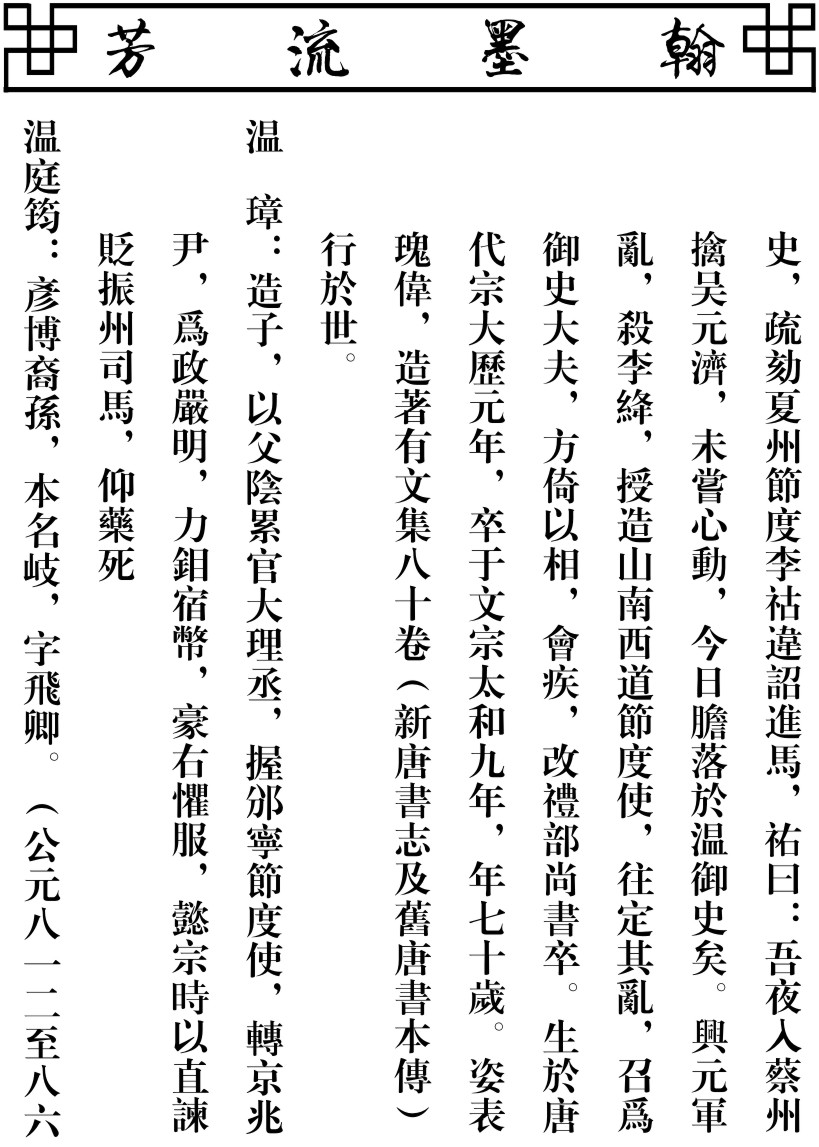 翰墨流芳
史，疏劾夏州節度李祜違詔進馬，祐曰：吾夜入蔡州
擒吴元濟，未嘗心動，今日膽落於温御史矣。興元軍
亂，殺李絳，授造山南西道節度使，往定其亂，召爲
御史大夫，方倚以相，會疾，改禮部尚書卒。生於唐
代宗大歷元年，卒于文宗太和九年，年七十歲。姿表
瑰偉，造著有文集八十卷（新唐書志及舊唐書本傳）
行於世。
温　璋：造子，以父陰累官大理丞，握邠寧節度使，轉京兆
尹，爲政嚴明，力鉏宿幣，豪右懼服，懿宗時以直諫
貶振州司馬，仰藥死
温庭筠：彥博裔孫，本名岐，字飛卿。（公元八一二至八六